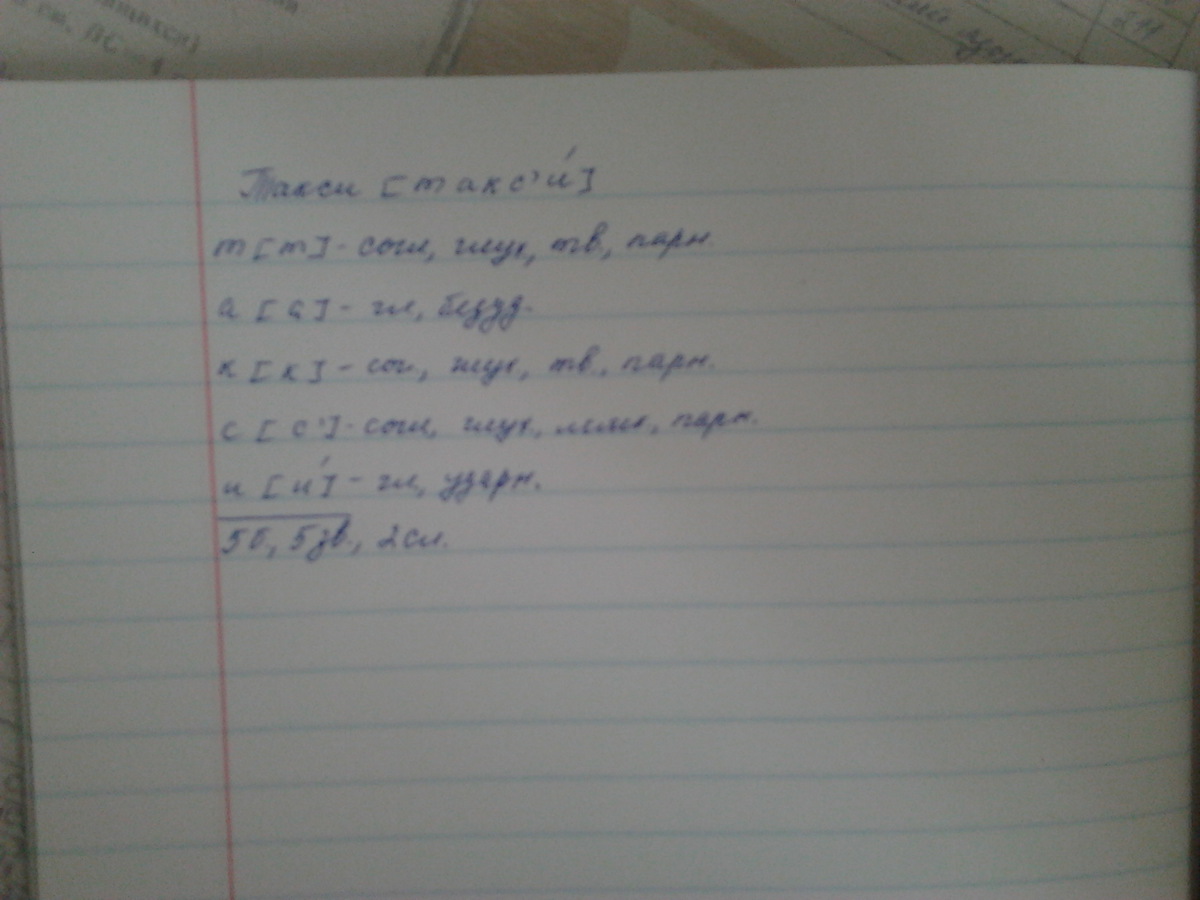 см. ПС-
2Н
Такси [такс'и́]
т [т] - согл, глух, тв., парн.
а [а] - гл, безуд.
к [к] - сог, глух, тв., парн.
с [с'] - согл, глух, мягк, парн.
и [и́] - гл, ударн.
5б, 5зв., 2сл.